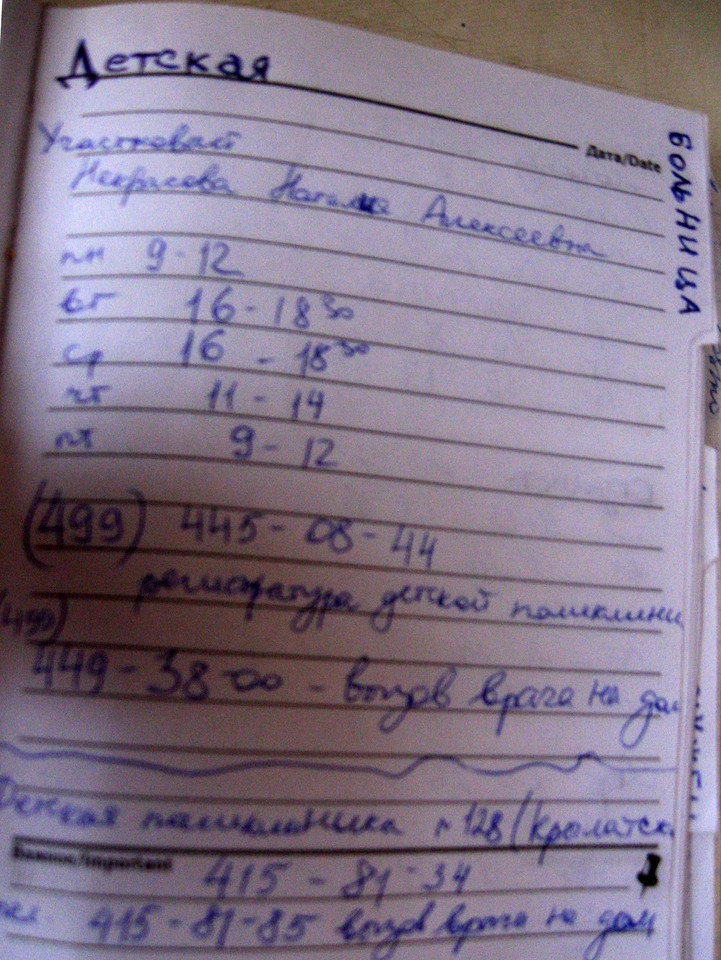 Детская
Дата/Date
БОЛЬНИЦА
Участковый
Некрасова Наталия Алексеевна
пн 9-12
вт 16-18 30
ср 16-18 30
чт 11-14
пт 9-12
(499) 445-08-44
регистратура детской поликлини
(499)
449-38-00 - вызов врача на дом
Детская поликлиника №128 (Крылатск
Важное/Important
415-81-34
тел. 415-81-85 вызов врача на дом